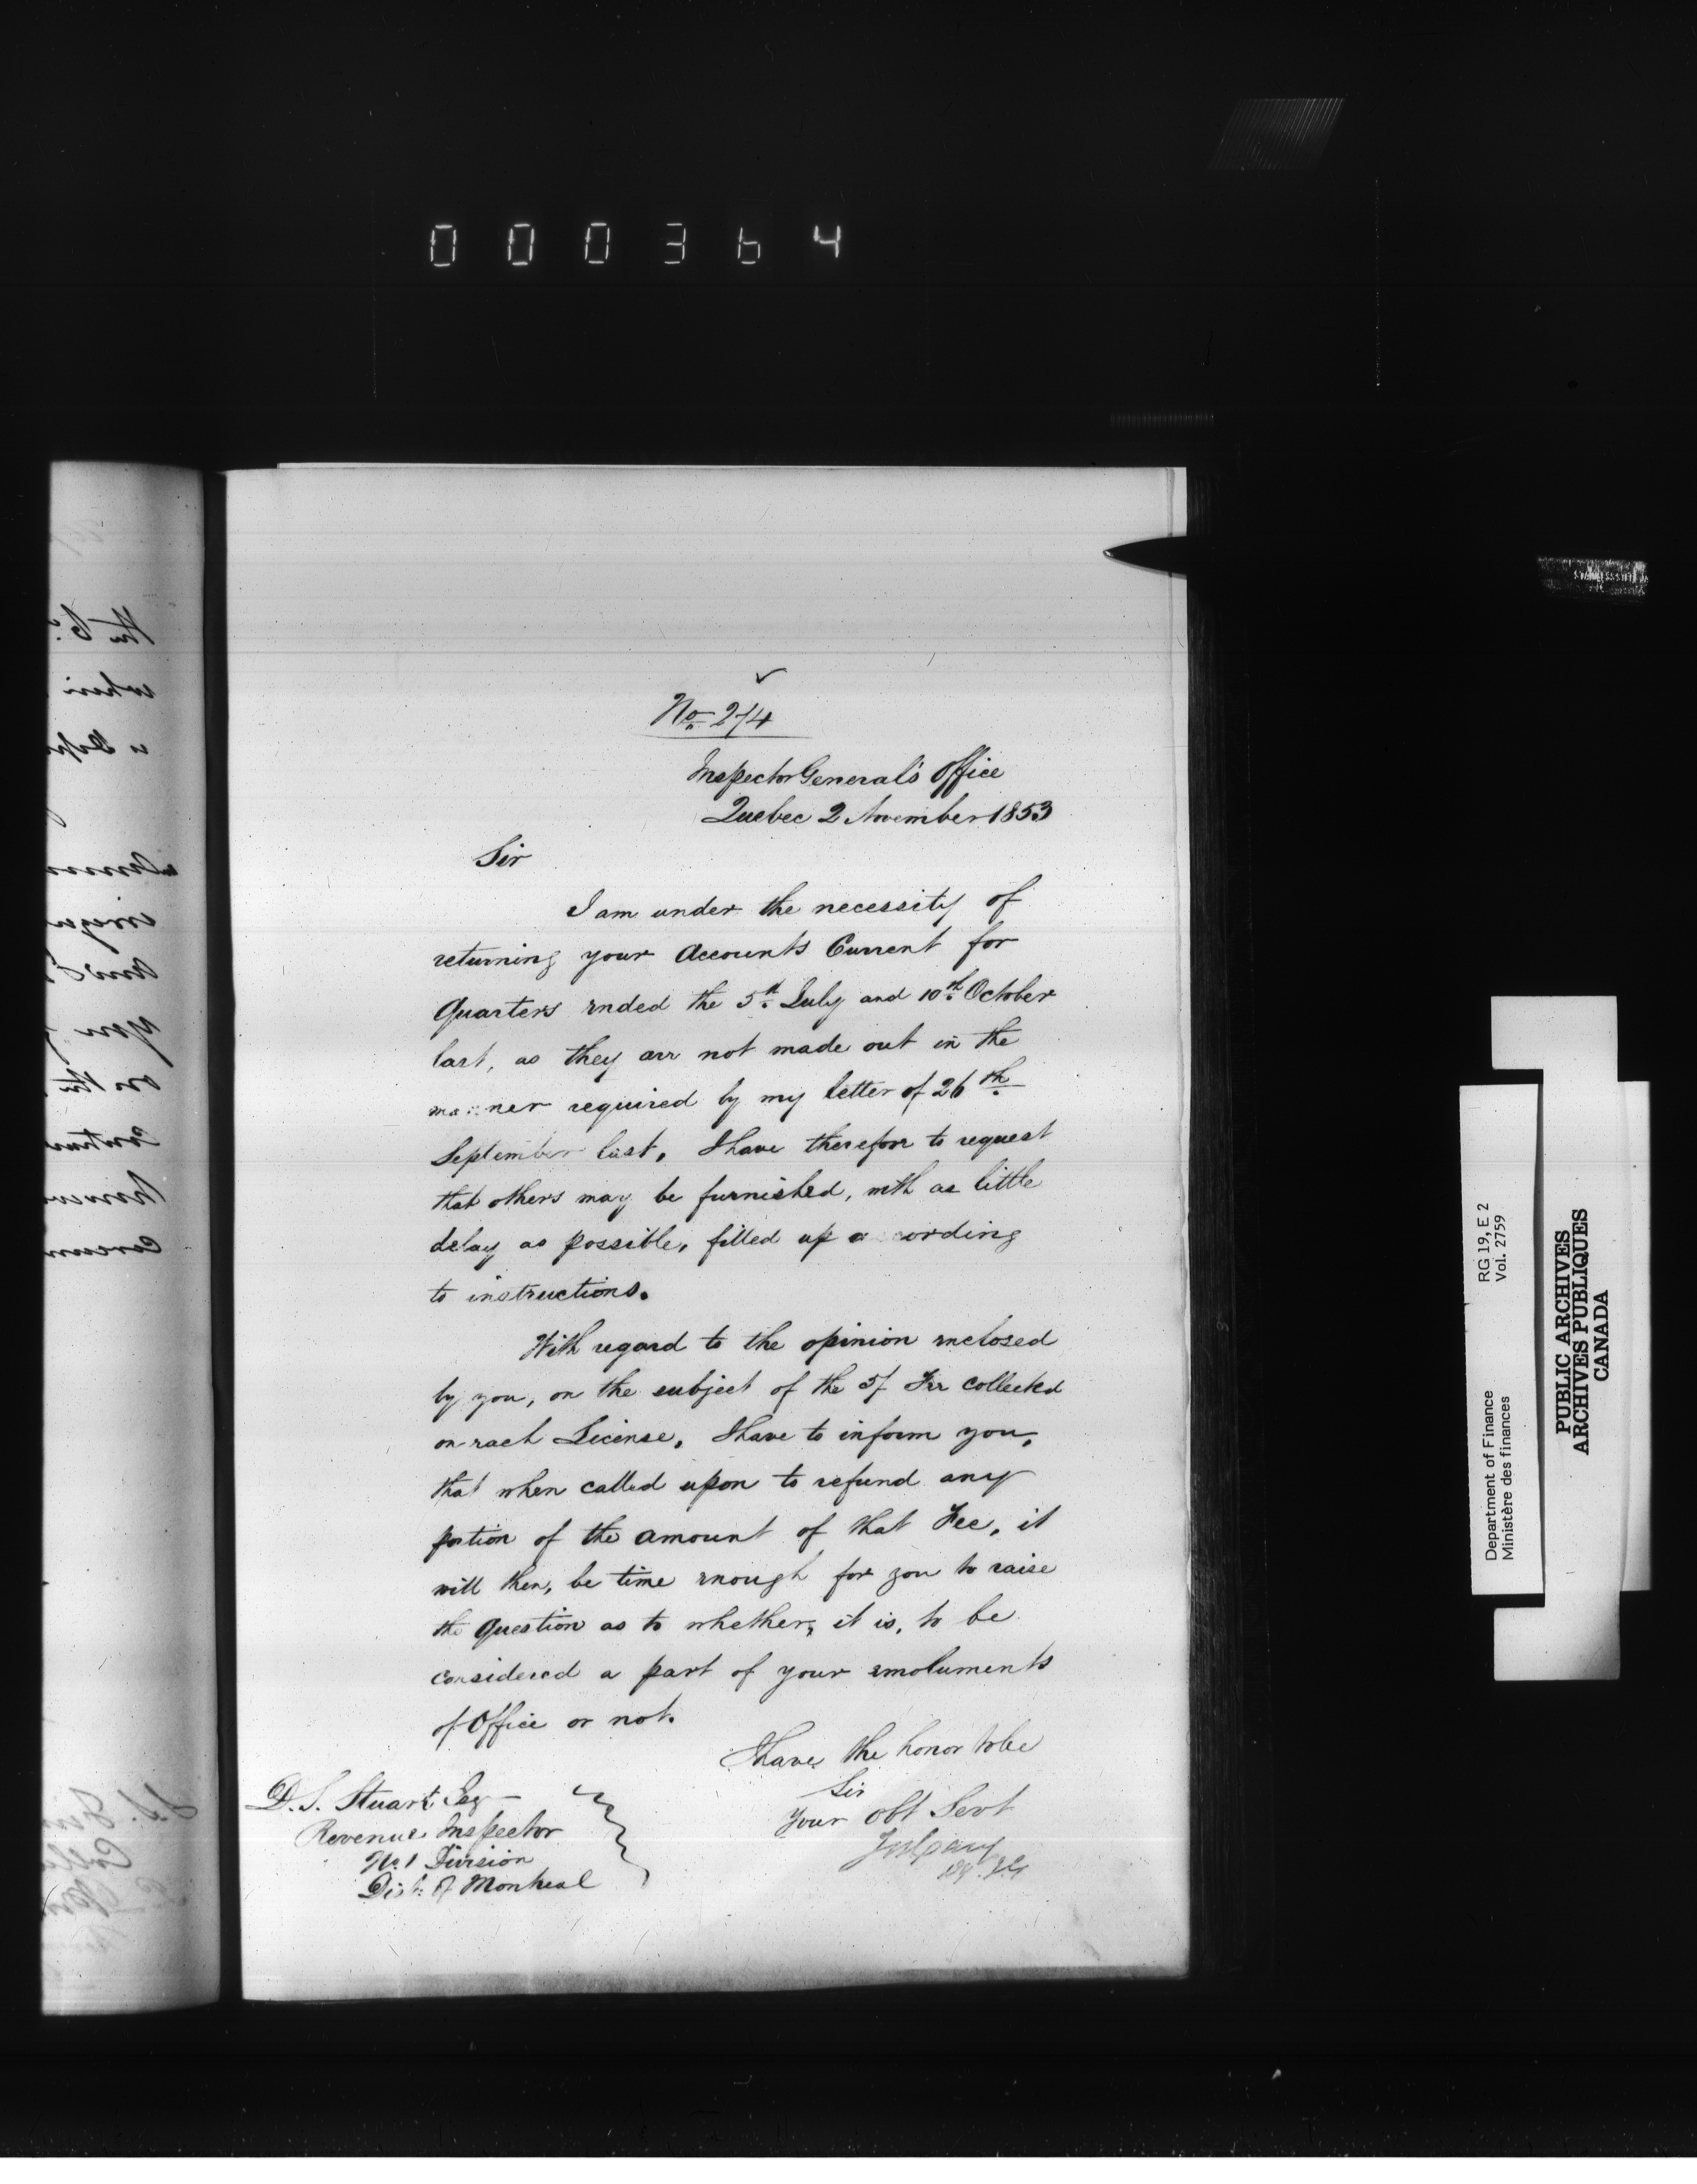 000364
No. 274
Inspector General's Office
Quebec 2 November 1853
Sir
I am under the necessity of
returning your Accounts Current for
Quarters ended the 5th July and 10th October
last, as they are not made out in the
manner required by my letter of 26th
September last, I have therefore to request
that others may be furnished, with as little
delay as possible, filled up according
to instructions.
With regard to the opinion enclosed
by you, on the subject of the 5/ Fee collected
on each License, I have to inform you,
that when called upon to refund any
portion of the amount of that Fee, it
will then, be time enough for you to raise
the Question as to whether, it is, to be
considered a part of your emoluments
of Office or not.
I have the honor to be
Sir
Your Obt Servt
D. S. Stuart Esq
Revenue Inspector
No. 1 Division
Dist. of Montreal
RG 19, E 2
Vol. 2759
Department of Finance
Ministère des finances
PUBLIC ARCHIVES
ARCHIVES PUBLIQUES
CANADA